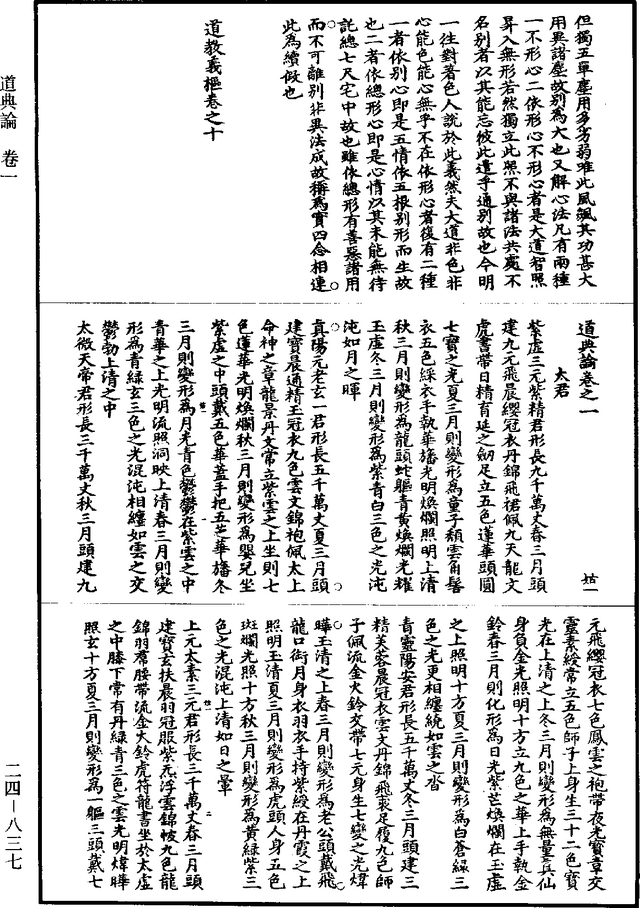 道典論　卷一
二四－八三七
但獨五單塵用多劣弱唯此風飄其功甚大
用異諸塵故別為大也又解心法凡有兩種
一不形心二依形心不形心者是大道智照
昇入無形若然獨立此照不與諸法共處不
名別者以其能忘彼此遣乎通別故也今明
一往對著色人說於此義然夫大道非色非
心能色能心無乎不在依形心者復有二種
一者依別心即是五情依五根別形而生故
也二者依總形心即是心情以其未能無待
託總七尺宅中故也雖依總形有善惡諸用
而不可離別非異法成故稱為實四念相連
此為續假也
道教義樞卷之十
道典論卷之一
太君
紫虛三元紫精君形長九千萬丈春三月頭
建九元飛晨纓冠衣丹錦飛裙佩九天龍文
虎書帶日精育延之劒足立五色蓮華頭圓
七寶之光夏三月則變形為童子頹雲角髻
衣五色綵衣手執華旛光明煥爛照明上清
秋三月則變形為龍頭蛇軀青黃煥爛光耀
玉虛冬三月則變形為紫青白三色之光沌
沌如月之暉
真陽元老玄一君形長五千萬丈夏三月頭
建寶晨通精玉冠衣九色雲文錦袍佩太上
命神之章龍景丹文常立紫雲之上坐則七
色蓮華光明煥爛秋三月則變形為嬰兒坐
紫虛之中頭戴五色華蓋手把五芝華旛冬
三月則變形為月光青色鬱鬱在紫雲之中
青華之上光明流照洞映上清春三月則變
形為青綠玄三色之光混沌相纏如雲之交
鬱勃上清之中
太微天帝君形長三千萬丈秋三月頭建九
元飛纓冠衣七色鳳雲之袍帶夜光寶章交
靈素綬常立五色師子上身生三十二色寶
光在上清之上冬三月則變形為無量真仙
身負金光照明十方立九色之華上手執金
鈴春三月則化形為日光紫芒煥爛在玉虛
之上照明十方夏三月則變形為白蒼綠三
色之光更相纏繞如雲之沓
青靈陽安君形長五千萬丈冬三月頭建三
精芙蓉晨冠衣雲大丹錦飛裘足履九色師
子佩流金火鈴交帶七元身生七變之光煒
曄玉清之上春三月則變形為老公頭戴飛
龍口銜月身衣羽衣手持紫綬在丹霞之上
照明玉清夏三月則變形為虎頭人身五色
斑爛光照十方秋三月則變形為黃綠紫三
色之光混沌上清如日之暈
上元太素三元君形長三千萬丈春三月頭
建寶玄扶晨羽冠服紫炁浮雲錦帔九色龍
錦羽裙腰帶流金火鈴虎符龍書坐於太虛
之中膝下常有丹綠青三色之雲光明煒曄
照玄十方夏三月則變形為一軀三頭戴七